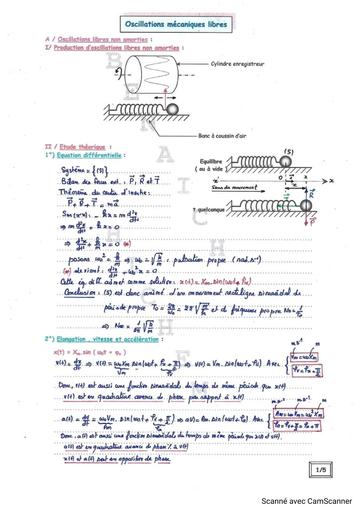 Oscillations mécaniques libres
A / Oscillations libres non amorties :
I/ Production d'oscillations libres non amorties :
Cylindre enregistreur
Banc à coussin d'air
II / Etude théorique :
1°) Equation différentielle :
Système = {(S)}
Bilan des forces ext. : P, R et T
Théorème du centre d'inertie :
P + R + T = ma
Equilibre
( ou à vide )
(S)
x' 0 x
Sens du mouvement
t quelconque
Sur (x'x) : - kx = m d²x/dt²
⇒ m d²x/dt² + kx = 0
⇒ d²x/dt² + k/m x = 0 (*)
posons ω₀² = k/m ⇒ ω₀ = √(k/m) : pulsation propre (rad.s⁻¹)
(*) devient : d²x/dt² + ω₀² x = 0
Cette éq diff admet comme solution : x(t) = Xm.sin(ω₀t + φx)
Conclusion : (S) est donc animé d'un mouvement rectiligne sinusoïdal de
période propre T₀ = 2π/ω₀ = 2π√(m/k) et de fréquence propre N₀ = 1/T₀
⇒ N₀ = 1/2π √(k/m)
2°) Elongation , vitesse et accélération :
x(t) = Xm sin ( ω₀t + φx )
v(t) = dx/dt ⇒ v(t) = ω₀Xm sin(ω₀t + φx + π/2) ⇒ v(t) = Vm. sin(ω₀t + φv) Avec { Vm = ω₀Xm φv = φx + π/2
Donc, v(t) est aussi une fonction sinusoïdale du temps de même période que x(t)
v(t) est en quadrature avance de phase par rapport à x(t)
a(t) = dv/dt = ω₀Vm. sin(ω₀t + φv + π/2) ⇒ a(t) = Am. sin(ω₀t + φa) Avec { Am = ω₀Vm = ω₀²Xm φa = φv + π/2 = φx + π
Donc, a(t) est aussi une fonction sinusoïdale du temps de même période que x(t) et v(t)
a(t) est en quadrature avance de phase / à v(t)
x(t) et a(t) sont en opposition de phase
1/5
Scanné avec CamScanner